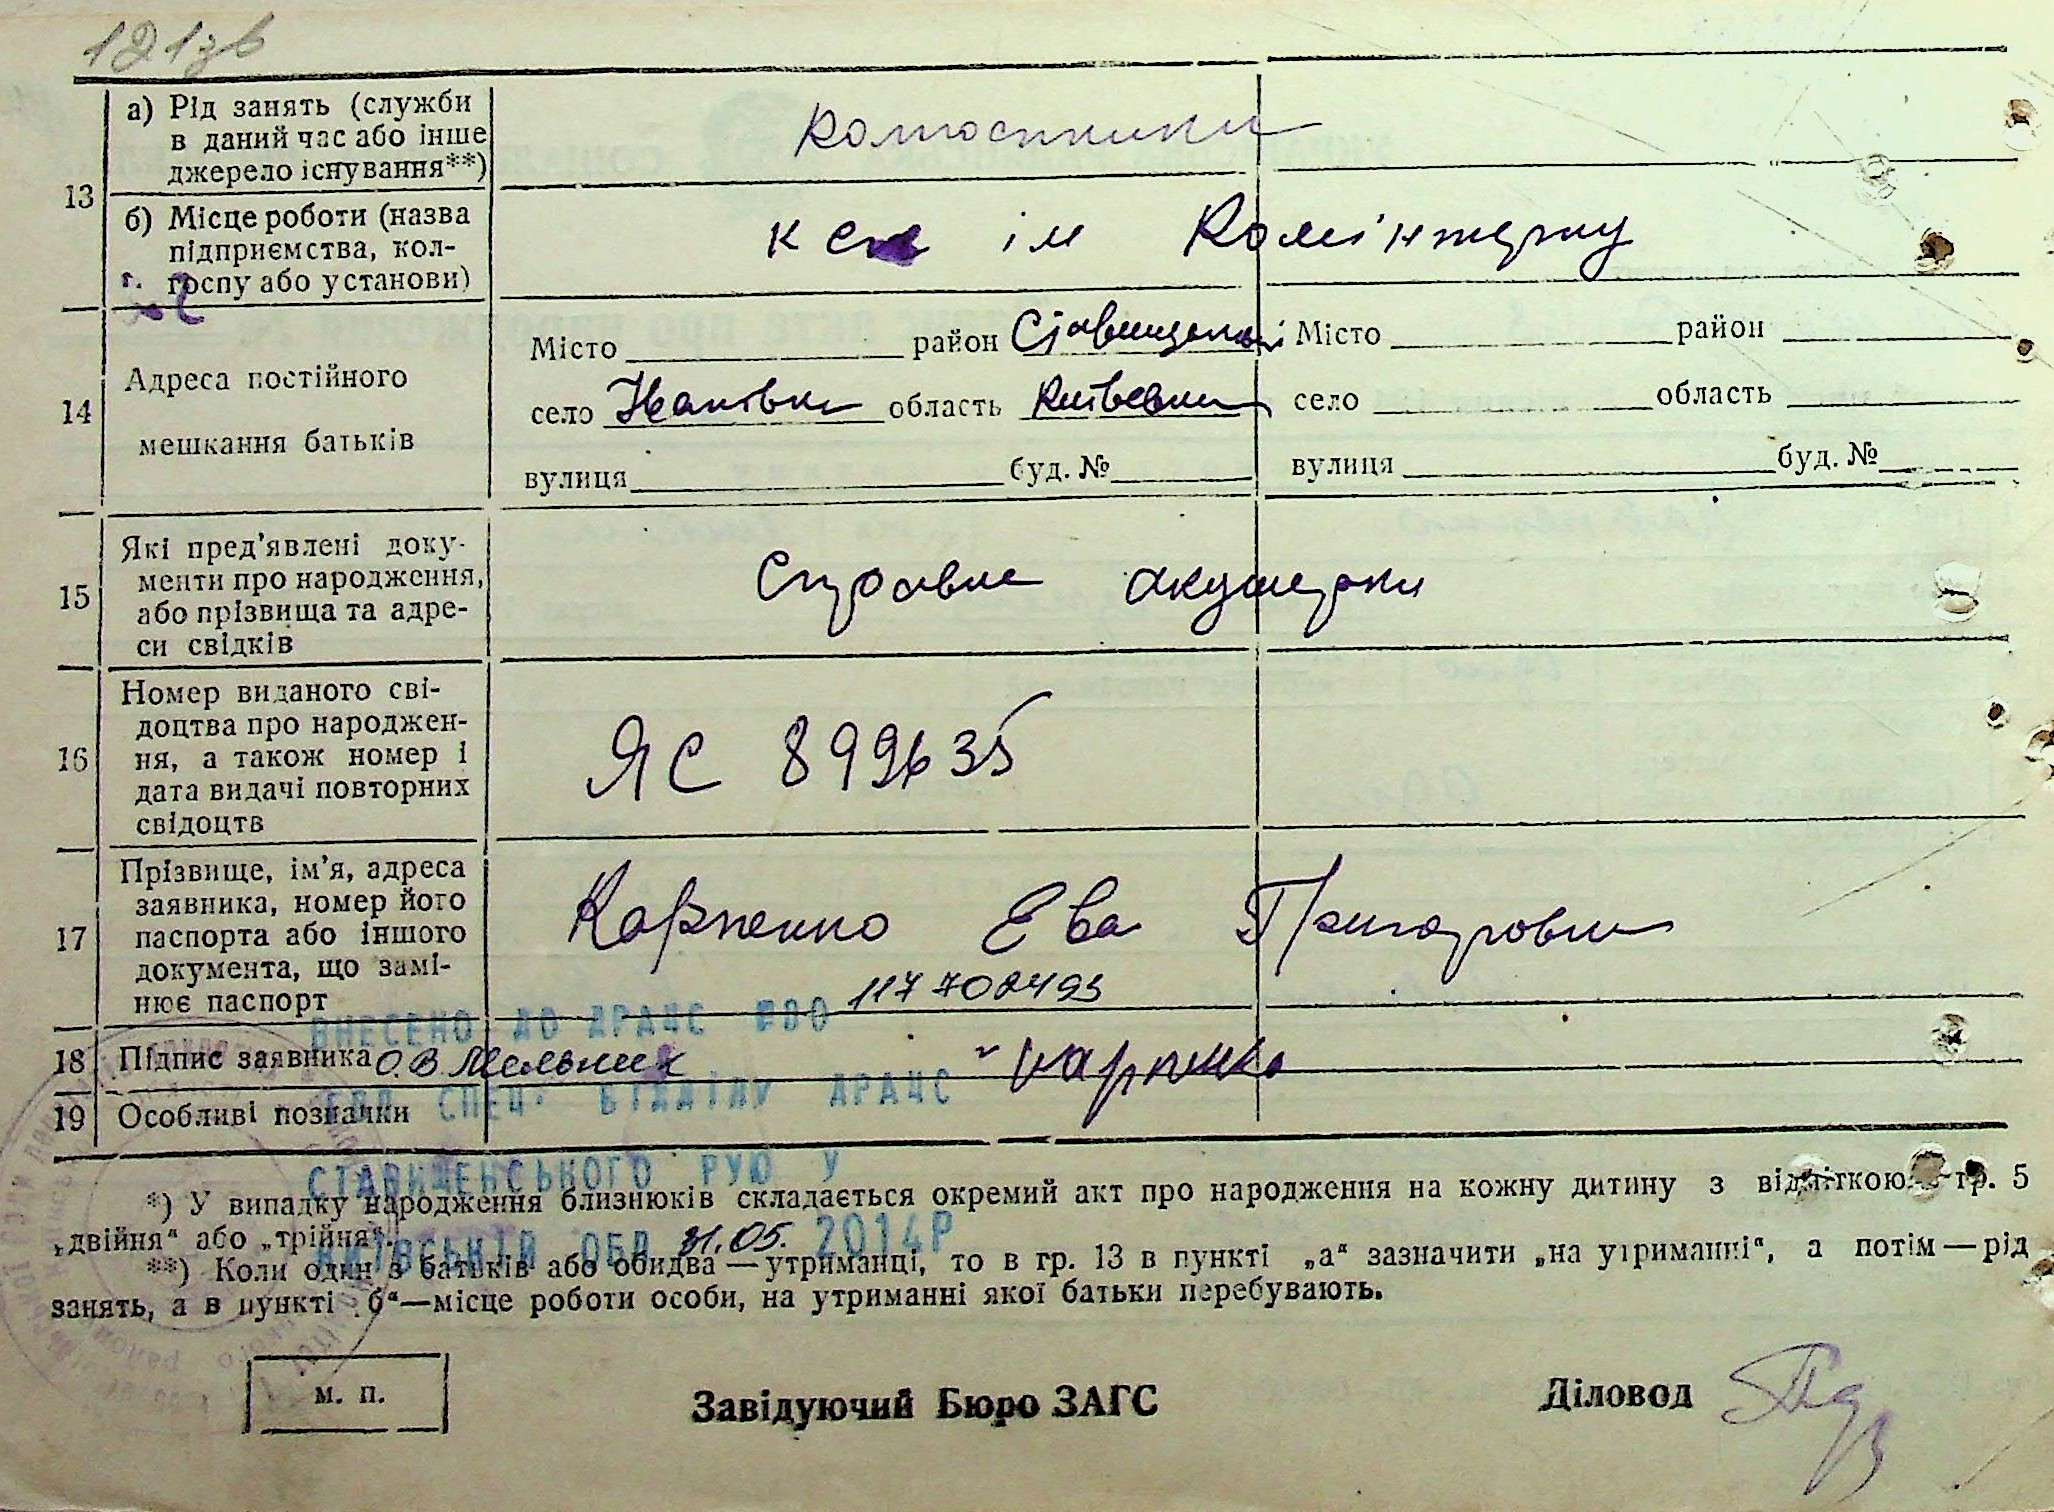 121зв
13
а) Рід занять (служби
в даний час або інше
джерело існування**)
колгоспники
б) Місце роботи (назва
підприємства, кол-
госпу або установи)
ім Комінтерну
14
Адреса постійного
мешкання батьків
Місто район Ставищенськ
село Іванівка область Київська
вулиця буд. №
Місто район
село область
вулиця буд. №
15
Які пред'явлені доку-
менти про народження,
або прізвища та адре-
си свідків
Справка акушерки
16
Номер виданого сві-
доцтва про народжен-
ня, а також номер і
дата видачі повторних
свідоцтв
ЯС 899635
17
Прізвище, ім'я, адреса
заявника, номер його
паспорта або іншого
документа, що замі-
нює паспорт
Карпенко Ева Григоровна
ВНЕСЕНО ДО ДРАЦС
117702493
18 Підпис заявника О.В Мельник Карпенко
СПЕЦ. ВІДДІЛУ ДРАЦС
19 Особливі позначки
СТАВИЩЕНСЬКОГО РУЮ У
*) У випадку народження близнюків складається окремий акт про народження на кожну дитину з відміткою в гр. 5
„двійня“ або „трійня“.
КИЇВСЬКІЙ ОБЛ 31.05. 2014Р
**) Коли один з батьків або обидва—утриманці, то в гр. 13 в пункті „а“ зазначити „на утриманні“, а потім—рід
занять, а в пункті „б“—місце роботи особи, на утриманні якої батьки перебувають.
м. п.
Завідуючий Бюро ЗАГС
Діловод